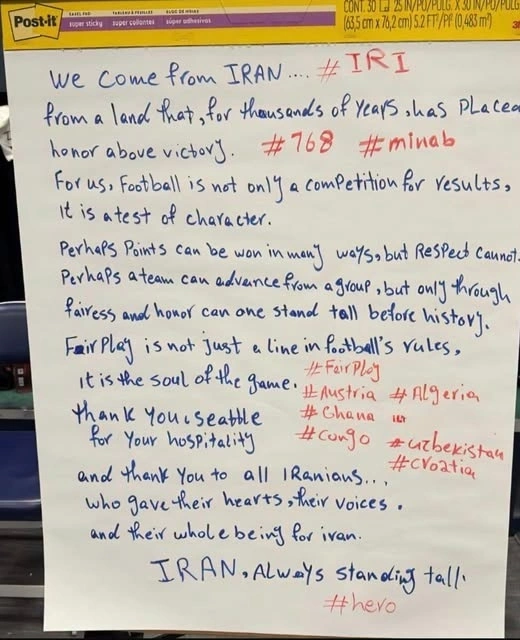 Post-it
EASEL PAD TABLEAU À FEUILLES BLOC DE HOJAS
super sticky super collantes súper adhesivas
CONT. 30 25 IN/PO/PULG. X 30 IN/PO/PULG
(63,5 cm x 76,2 cm) 5.2 FT²/PI² (0,483 m²)
We come from IRAN.... #IRI
from a land that, for thousands of years, has Placed
honor above victory. #768 #minab
For us, Football is not only a competition for results,
It is a test of character.
Perhaps Points can be won in many ways, but Respect cannot.
Perhaps a team can advance from a group, but only through
fairess and honor can one stand tall before history.
Fair Play is not just a line in football's rules,
it is the soul of the game. #FairPlay
#Austria #Algeria
thank you, seattle #Ghana
for Your hospitality #congo #uzbekistan
#croatia
and thank You to all IRanians...
who gave their hearts, their voices.
and their whole being for iran.
IRAN, Always standing tall.
#hero